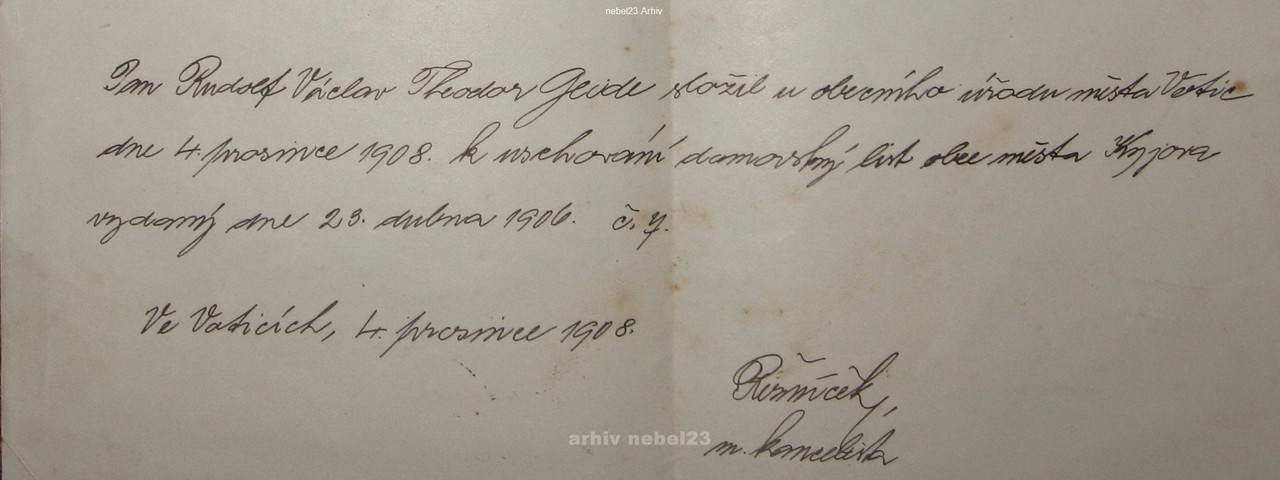 nebel23 Arhiv
Pan Rudolf Václav Theodor Geide složil u obecního úřadu města Votic
dne 4. prosince 1908. k uschování domovský list obce města Kyjova
vydaný dne 23. dubna 1906. č. 7.
Ve Voticích, 4. prosince 1908.
Řezníček,
m. kancelista
arhiv nebel23